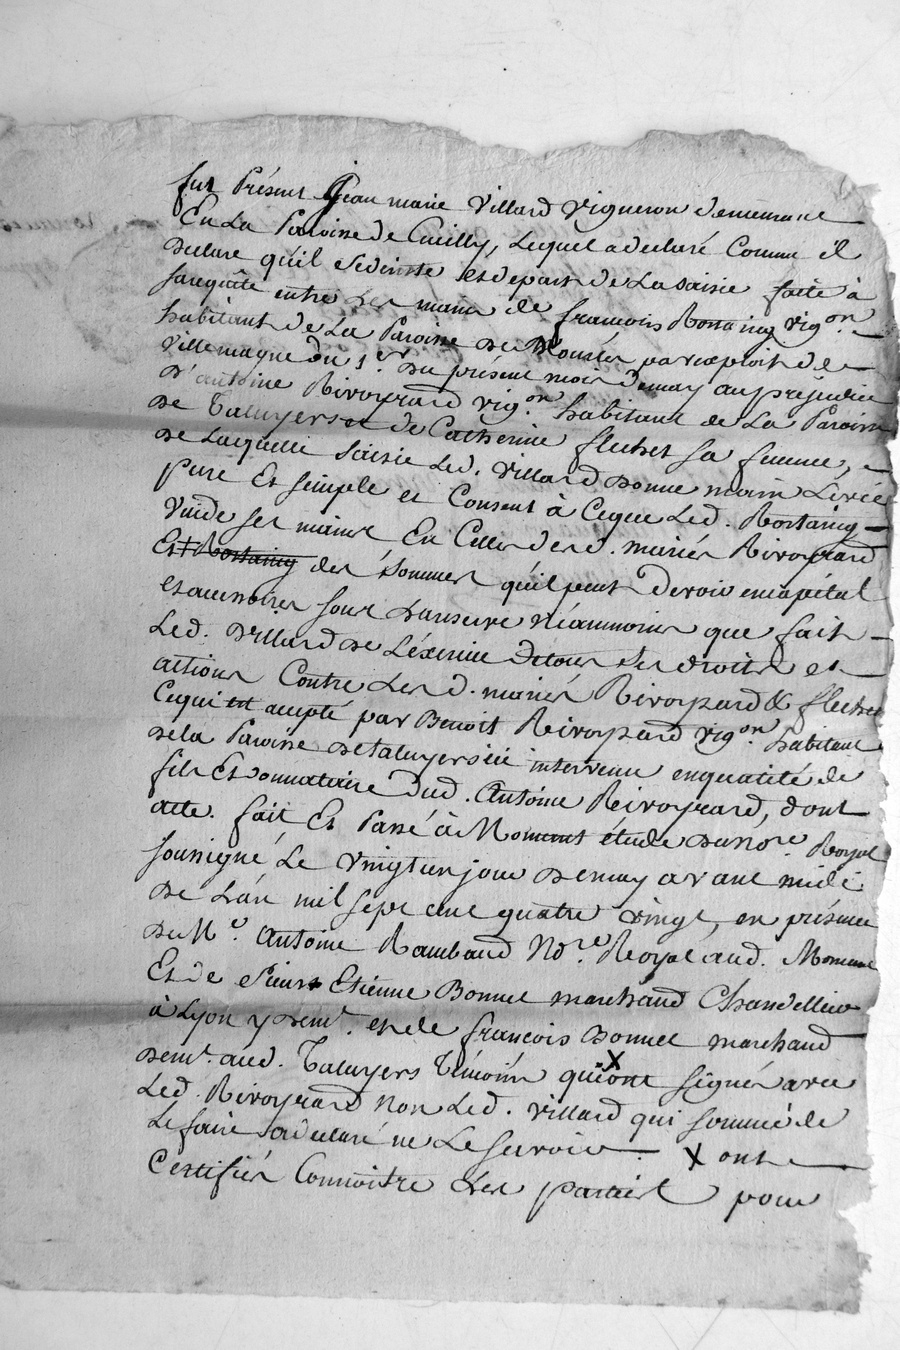 fut Présent Jean marie Villard Vigneron demeurant
En La Paroisse de Cuilly, Lequel a declaré Comme il
Declare qu'il Se desiste et depart de La Saisie faite à
sa requête entre Les mains de françois Rostaing vig.on
habitant de La Paroisse De par exploit de
Villemagne du 1.er du présent mois demay au préjudice
D'antoine Rivoyrard vig.on habitant de La Paroisse
De Taluyers et de Catherine flechet sa femme,
De Laquelle Saisie Led. Villard Donne main Levée
pure Et Simple et Consent à Ceque Led. Rostaing
Vuide Ses mains En Celles des d. mariés Rivoyrard
Et Rostaing des Sommes qu'il peut devoir en capital
et accessoires sous Néammoins que fait
Led. Villard De Réserve De tous Ses droits et
actions Contre Les d. mariés Rivoyrard & flechet
Cequi est accepté par Benoit Rivoyrard vig.on habitant
Dela Paroisse De taluyers ici intervenu en qualité de
fils Et Donnataire dud. Antoine Rivoyrard, dont
acte. fait Et Passé à Mornant étude Du No.re Royal
soussigné Le vingt un jour De may avant midi
De L'an mil sept cent quatre vingt, en présence
De M.e Antoine Rambaud No.re Royal aud. Mornant
Et de Sieurs Etienne Bonnet marchand Chandellier
à Lyon y dem.t et de françois Bonnet marchand
Dem.t aud. Taluyers Témoins qui X ont signés avec
Led. Rivoyrard non Led. Villard qui sommé de
Le faire a declaré ne Le Scavoir. X ont
Certifiés Connoitre Les parties pour